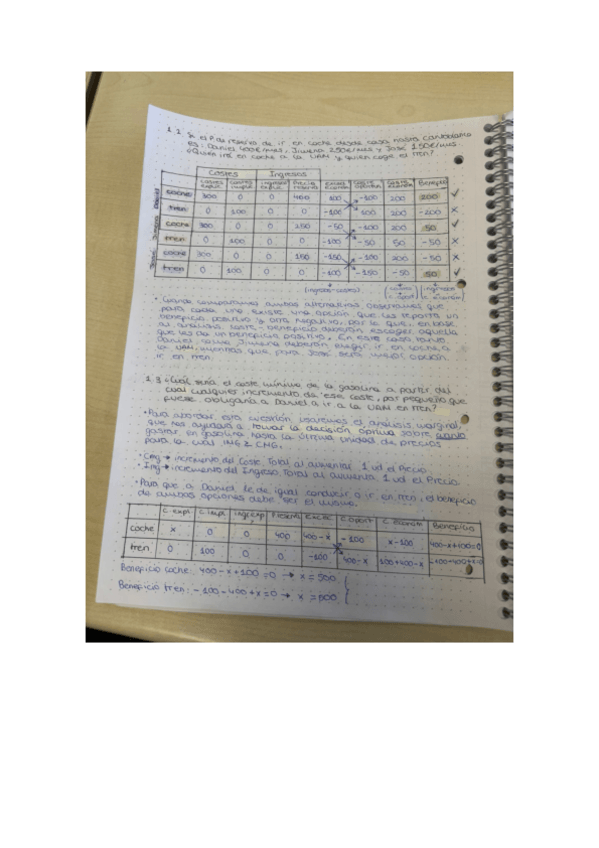 1.2. Si el P de reserva de ir en coche desde casa hasta Cantoblanco
es: Daniel 400€/mes, Jimena 250€/mes y José 150€/mes.
¿Quién irá en coche a la UAM y quién coge el tren?
Costes Ingresos
costes explic. costes implic. ingresos explic. Precio reserva Exced. econom. coste oportun. coste econom. Benefic
coche 300 0 0 400 100 -100 200 200 ✓
tren 0 100 0 0 -100 100 200 -200 x
coche 300 0 0 250 -50 -100 200 50 ✓
tren 0 100 0 0 -100 -50 50 -50 x
coche 300 0 0 150 -150 -100 200 -50 x
tren 0 100 0 0 -100 -150 -50 50 ✓
(ingresos-costes)
• Cuando comparamos ambas alternativas observamos que
para cada uno existe una opción que les reporta un
beneficio positivo y otra negativo, por lo que, en base
al análisis coste-beneficio deberán escoger aquella
que les dé un beneficio positivo. En este caso tanto
Daniel como Jimena deberán elegir ir en coche a
la UAM, mientras que para José será mejor opción
ir en tren.
1.3 ¿Cuál sería el coste mínimo de la gasolina a partir del
cual cualquier incremento de este coste, por pequeño que
fuese, obligaría a Daniel a ir a la UAM en tren?
• Para abordar esta cuestión usaremos el análisis marginal,
que nos ayudará a tomar la decisión óptima sobre cuánto
gastar en gasolina hasta la última unidad de precios
para la cual IMG ≥ CMG.
• Cmg → incremento del Coste Total al aumentar 1 ud el Precio
• Img → incremento del Ingreso Total al aumenta 1 ud el Precio.
• Para que a Daniel le dé igual conducir o ir en tren, el beneficio
de ambas opciones debe ser el mismo.
C. expl C. impl Ing exp P reserva Exced C. oport C. Econom Beneficio
coche x 0 0 400 400-x -100 x-100 400-x+100=0
tren 0 100 0 0 -100 400-x 100+400-x -100-400+x=0
Beneficio coche: 400-x+100=0 → x=500
Beneficio tren: -100-400+x=0 → x=500